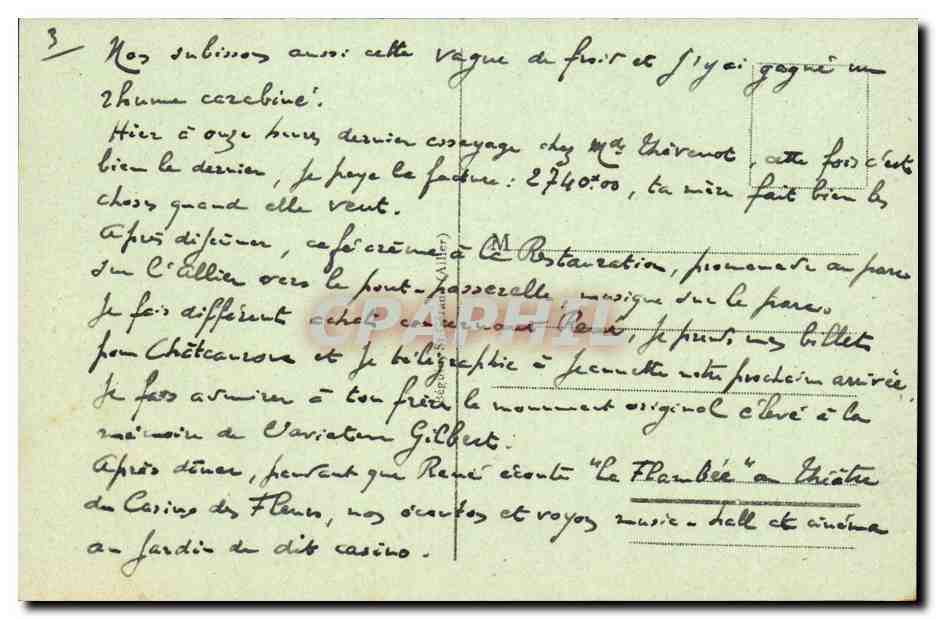 3
Nos subissons aussi cette vague de froid et j'y ai gagné un
rhume carabiné.
Hier à onze heures dernier essayage chez Mde Thévenot, cette fois c'est
bien le dernier, je paye la facture : 2740.00, ta mère fait bien les
choses quand elle veut.
Après déjeuner, café crème à la Restauration, promenade au parc
M
sur l'Allier vers le pont-passerelle, musique sur le parc.
Je fais différent achats concernant René, je prends mes billets
pour Châteauroux et je télégraphie à Jeannette notre prochaine arrivée.
Je fais admirer à ton frère le monument original élevé à la
mémoire de l'aviateur Gilbert.
Après dîner, pendant que René écoute "La Flambée" au Théâtre
du Casino des Fleurs, nos écoutons et voyons music-hall et cinéma
au jardin du dit casino.
(Allier)
CPAPHIL